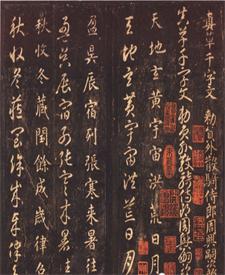 真草千字文 勅員外散騎侍郎周興嗣
真草千字文 勅員外散騎侍郎周興嗣
天地玄黃宇宙洪荒日月
天地玄黃宇宙洪荒日月
盈昃辰宿列張寒來暑往
盈昃辰宿列張寒來暑往
秋收冬藏閏餘成歲律呂
秋收冬藏閏餘成歲律呂